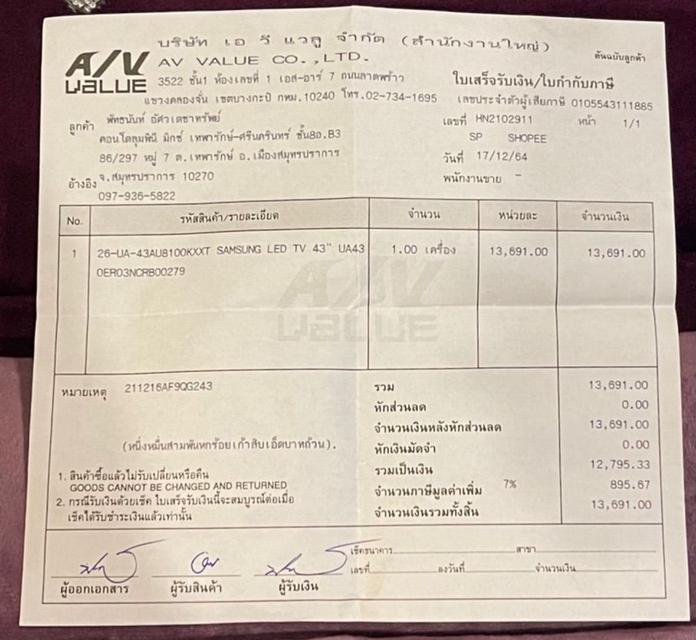 บริษัท เอ วี แวลู จำกัด (สำนักงานใหญ่)
ต้นฉบับลูกค้า
A/V VALUE
AV VALUE CO.,LTD.
3522 ชั้น1 ห้องเลขที่ 1 เอส-อาร์ 7 ถนนลาดพร้าว
ใบเสร็จรับเงิน/ใบกำกับภาษี
แขวงคลองจั่น เขตบางกะปิ กทม.10240 โทร.02-734-1695
เลขประจำตัวผู้เสียภาษี 0105543111885
ลูกค้า พัทธนันท์ อัศวเดชาทรัพย์
เลขที่ HN2102911 หน้า 1/1
คอนโดลุมพินี มิกซ์ เทพารักษ์-ศรีนครินทร์ ชั้น8อ.B3
SP SHOPEE
86/297 หมู่ 7 ต.เทพารักษ์ อ.เมืองสมุทรปราการ
วันที่ 17/12/64
อ้างอิง จ.สมุทรปราการ 10270
พนักงานขาย -
097-936-5822
No. รหัสสินค้า/รายละเอียด จำนวน หน่วยละ จำนวนเงิน
1 26-UA-43AU8100KXXT SAMSUNG LED TV 43" UA43 1.00 เครื่อง 13,691.00 13,691.00
0ER03NCRB00279
A/V VALUE
หมายเหตุ 211216AF9QG243
รวม 13,691.00
หักส่วนลด 0.00
จำนวนเงินหลังหักส่วนลด 13,691.00
(หนึ่งหมื่นสามพันหกร้อยเก้าสิบเอ็ดบาทถ้วน).
หักเงินมัดจำ 0.00
รวมเป็นเงิน 12,795.33
จำนวนภาษีมูลค่าเพิ่ม 7% 895.67
จำนวนเงินรวมทั้งสิ้น 13,691.00
1. สินค้าซื้อแล้วไม่รับเปลี่ยนหรือคืน
GOODS CANNOT BE CHANGED AND RETURNED
2. กรณีรับเงินด้วยเช็ค ใบเสร็จรับเงินนี้จะสมบูรณ์ต่อเมื่อ
เช็คได้รับชำระเงินแล้วเท่านั้น
เช็คธนาคาร สาขา
เลขที่ ลงวันที่ จำนวนเงิน
ผู้ออกเอกสาร ผู้รับสินค้า ผู้รับเงิน